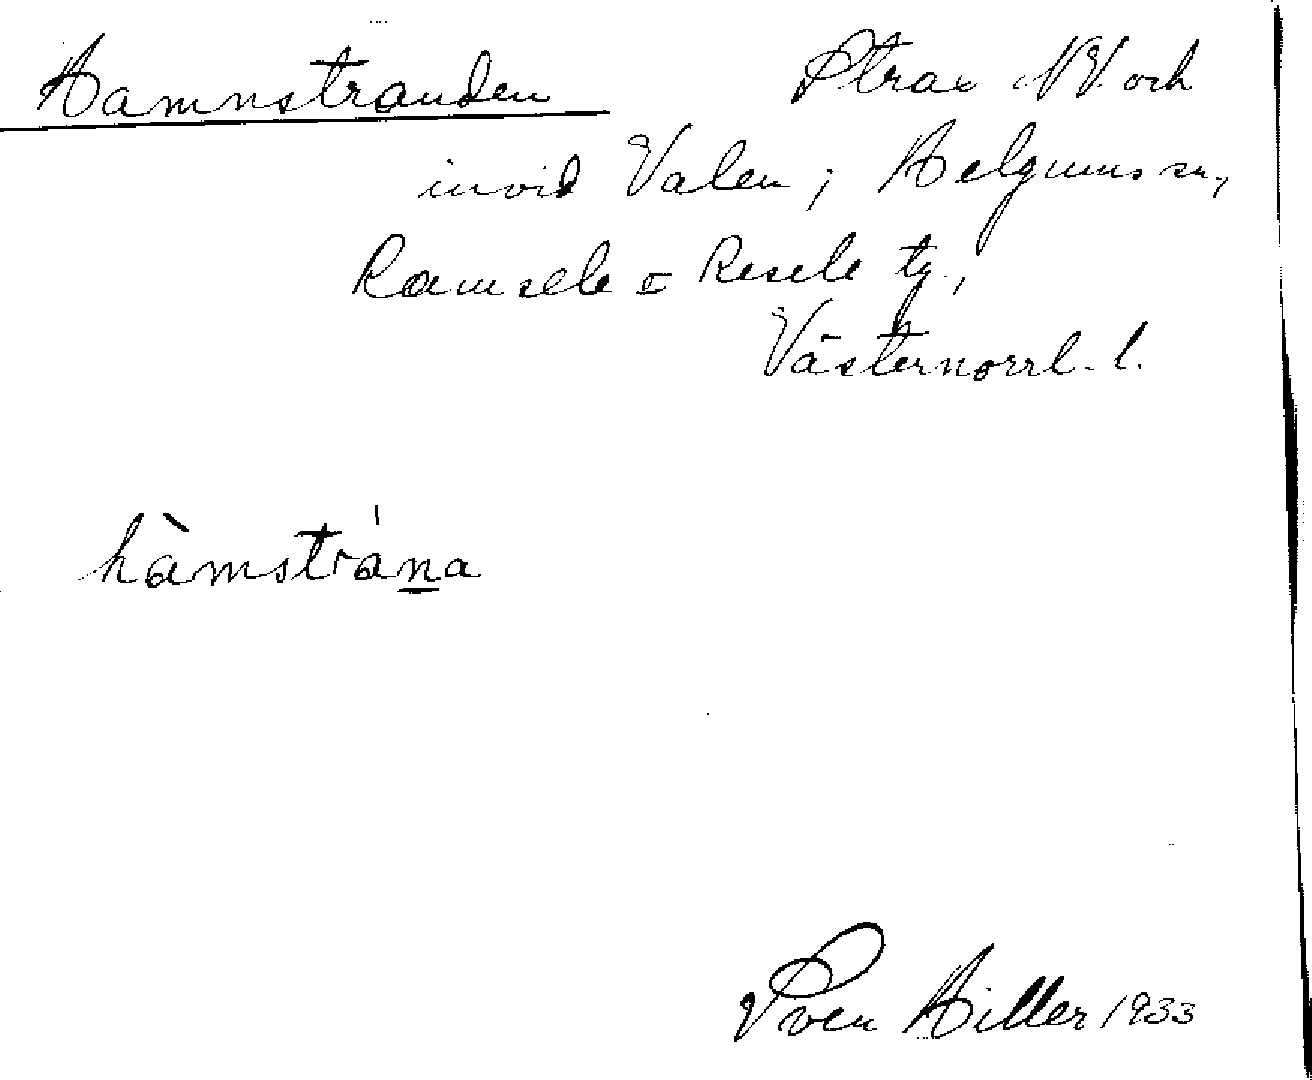 Hamnstranden Strax NV och
invid Valen; Helgums sn.,
Ramsele o Resele tg.,
Västernorrl. l.
hàmstrána
Sven Hiller 1933